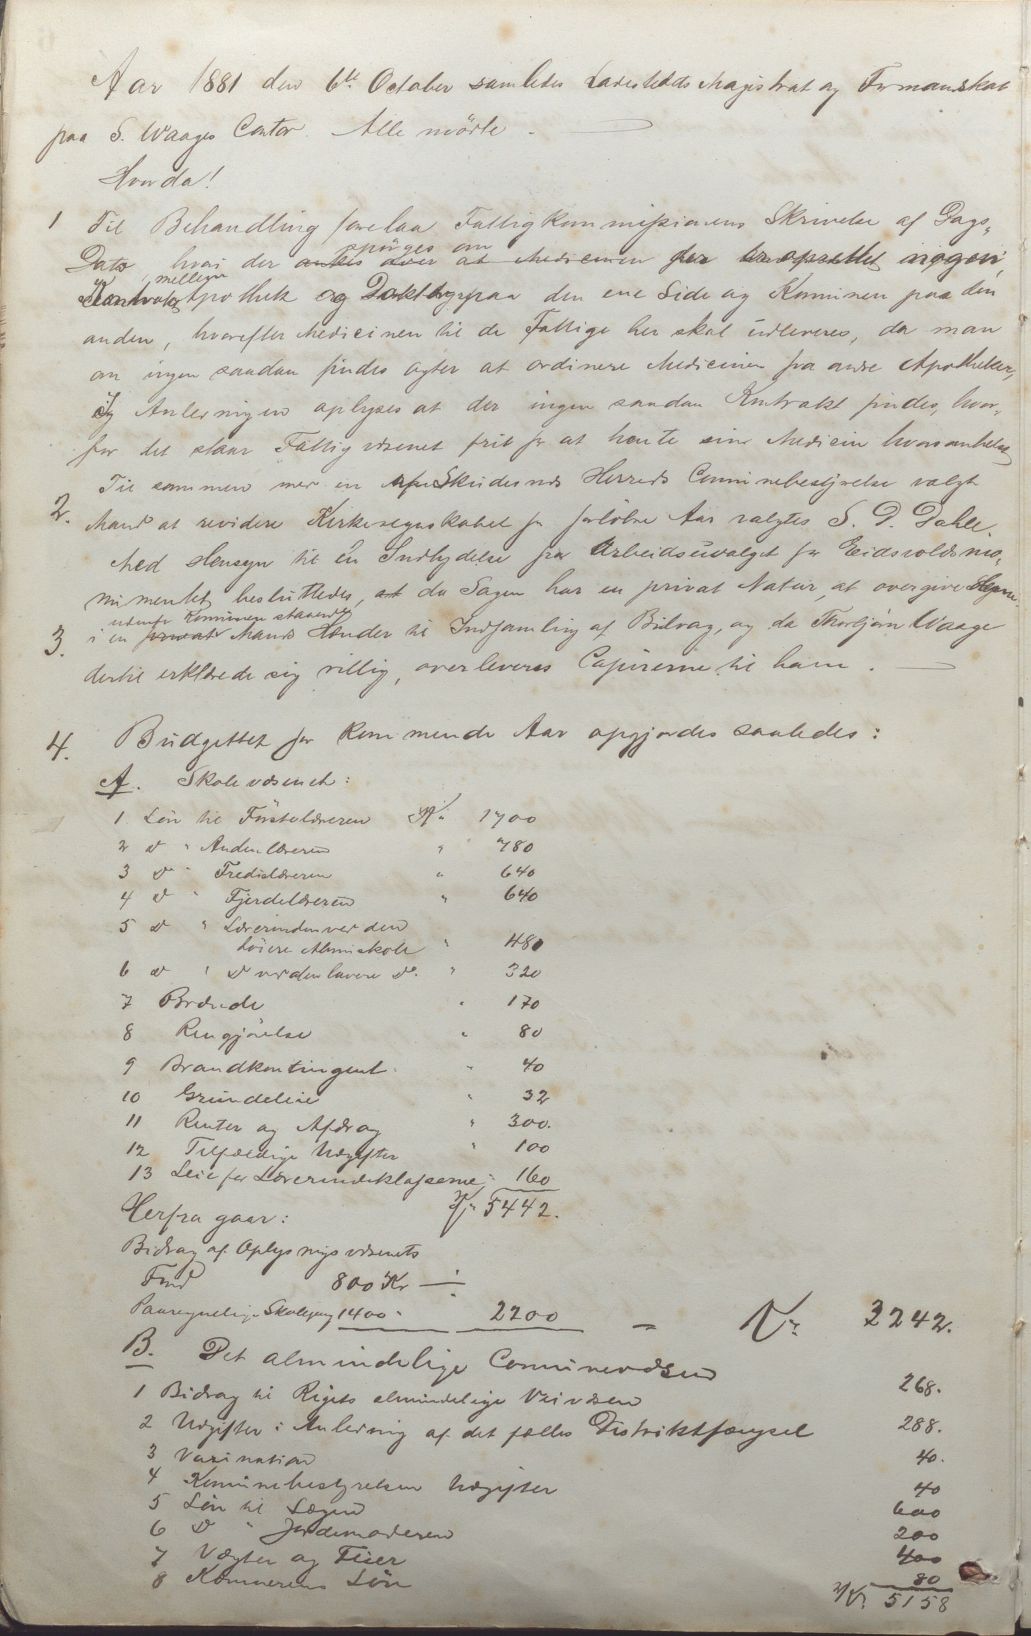 Aar 1881 den 6te October samledes Ladestedets Magistrat og Formanskab
paa S. Waages Contor. Alle mödte.
Hvorda!
1 Til Behandling forelaa Fattigkommissionens Skrivelse af Dags
Dato, hvori der spörges om der er oprettet nogen
Kontrakt mellem Apothek og Doktor paa den ene Side og Kommunen paa den
anden, hvorefter Medicinen til de Fattige her skal udleveres, da man
om ingen saadan findes agter at ordinere Medicinen fra andre Apotheker,
I Anledningen oplyses at der ingen saadan Kontrakt findes, hvor-
for det staar Fattigvæsenet frit for at hente sine Medicin hvorsomhelst
2. Til sammen med en af Skudesnes Herreds Communebestyrelse valgt
Mand at revidere Kirkeregnskabet for forløbne Aar valgtes S. D. Dahle.
3. Med Hensyn til en Indbydelse fra Arbeidsudvalget for Eidsvoldsmo-
numentet, besluttedes, at da Sagen har en privat Natur, at overgive
i en udenfor Kommunen staaende Mands Hænder til Indsamling af Bidrag, og da Thorbjörn Waage
dertil erklærede sig villig, overleveres Papirerne til ham.
4. Budgettet for kommende Aar opgjordes saaledes:
A. Skolevæsenet:
1 Lön til Förstelæreren Kr 1700
2 do " Andenlæreren " 780
3 do " Tredielæreren " 640
4 do " Fjerdelæreren " 640
5 do " Lærerinden ved den
höiere Almuskole " 480
6 do " do ved den lavere do. " 320
7 Brænde " 170
8 Rengjörelse " 80
9 Brandkontingent " 40
10 Grundleie " 32
11 Renter og Afdrag " 300.
12 Tilfældige Udgifter " 100
13 Leie for Lærerindeklasserne " 160
Kr 5442.
Herfra gaar:
Bidrag af Oplysningsvæsenets
Fond 800 Kr ÷
Paaregnelige Skolepeng 1400 " 2200 — Kr. 3242.
B. Det almindelige Communevæsen
1 Bidrag til Rigets almindelige Veivæsen 268.
2 Udgifter i Anledning af det fælles Distriktsfængsel 288.
3 Vaxination 40.
4 Kommunebestyrelsen Udgifter 40
5 Lön til Lægen 600
6 do " Jordemoderen 200
7 Vægter og Feier 400
8 Kæmnerens Lön 80
Kr. 5158